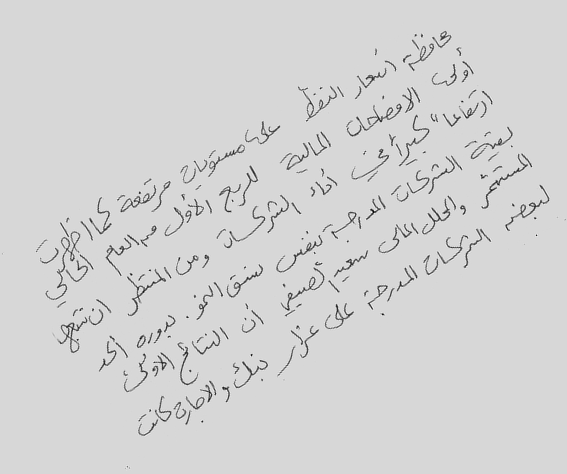 محافظة اسعار النفط على مستويات مرتفعة كما اظهرت
أولى الافصاحات المالية للربع الأول من العام الحالي
ارتفاعا" كبيراً في أداء الشركات ومن المنتظر ان تتبعها
بقية الشركات المدرجة بنفس نسق النمو. بدوره أكد
المستثمر والمحلل المالي سعيد لصيفي ان النتائج الأولى
لبعض الشركات المدرجة على غرار بنك والاجارة كانت